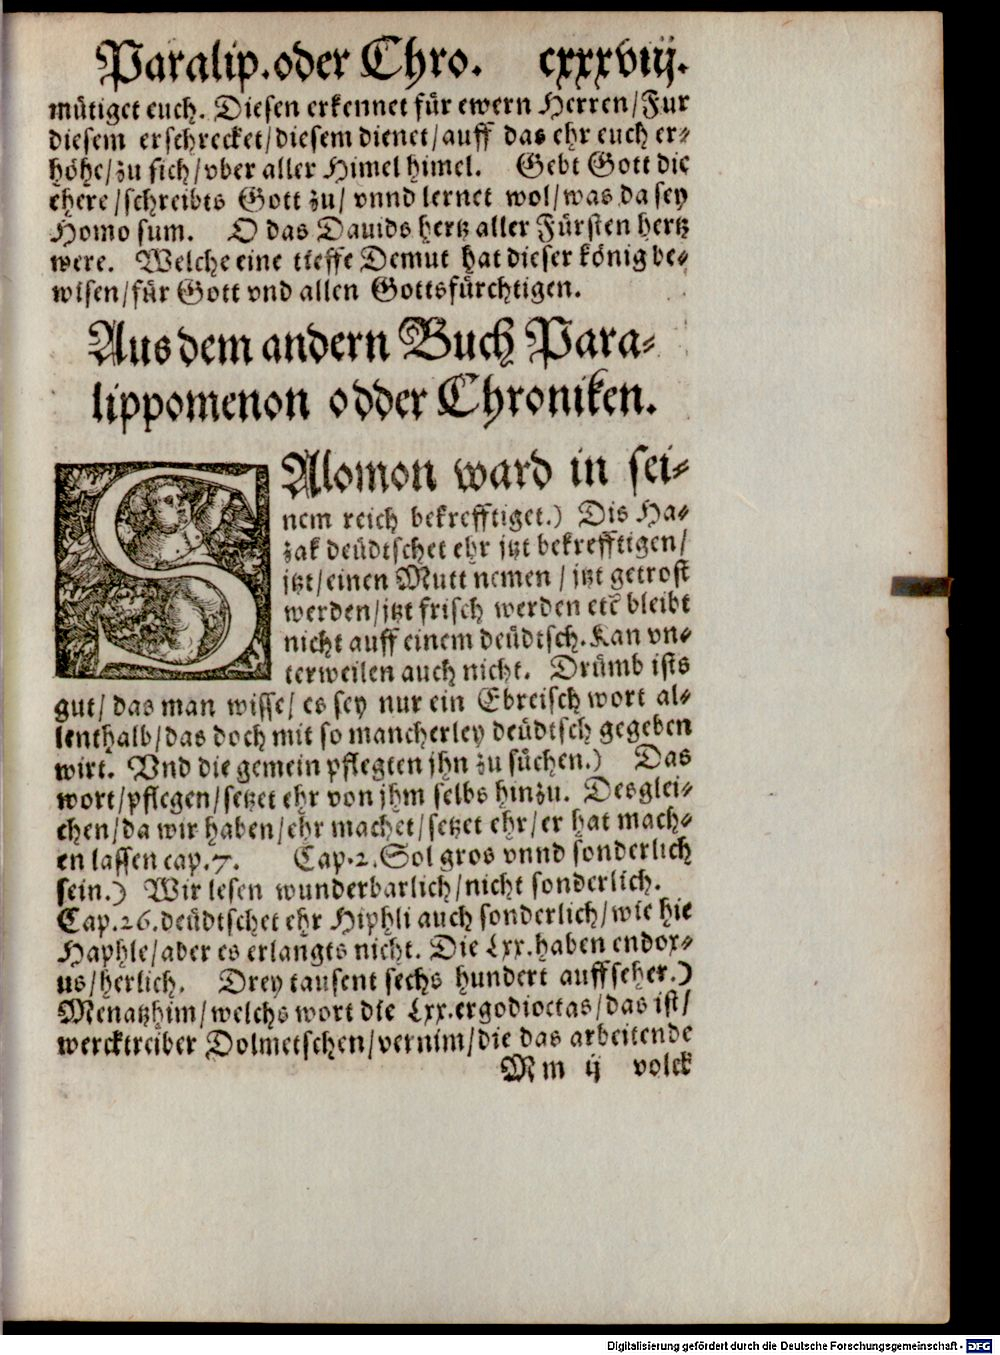 Paralip. oder Chro. cxxxviij.
mütiget euch. Diesen erkennet für ewern Herren/Fur
diesem erschrecket/diesem dienet/auff das ehr euch er-
höhe/zu sich/vber aller Himel himel. Gebt Gott die
ehere/schreibts Gott zu/ vnnd lernet wol/was da sey
Homo sum. O das Dauids hertz aller Fürsten hertz
were. Welche eine tieffe Demut hat dieser könig be-
wisen/für Gott vnd allen Gottsfürchtigen.
Aus dem andern Buch Para-
lippomenon odder Chroniken.
SAlomon ward in sei-
nem reich bekrefftiget.) Dis Ha-
zak deüdtschet ehr jtzt bekrefftigen/
jtzt/einen Mutt nemen/jtzt getrost
werden/jtzt frisch werden etc̃ bleibt
nicht auff einem deüdtsch. Kan vn-
terweilen auch nicht. Drümb ists
gut/das man wisse/es sey nur ein Ebreisch wort al-
lenthalb/das doch mit so mancherley deüdtsch gegeben
wirt. Vnd die gemein pflegten jhn zu süchen.) Das
wort/pflegen/setzet ehr von jhm selbs hinzu. Desglei-
chen/da wir haben/ehr machet/setzet ehr/er hat mach-
en lassen cap.7. Cap.2. Sol gros vnnd sonderlich
sein.) Wir lesen wunderbarlich/nicht sonderlich.
Cap.26. deüdtschet ehr Hiphli auch sonderlich/wie hie
Haphle/aber es erlangts nicht. Die Lxx. haben endox-
us/herlich. Drey tausent sechs hundert auffseher.)
Menatzhim/welchs wort die Lxx. ergodioctas/das ist/
wercktreiber Dolmetschen/vernim/die das arbeitende
Mm ij volck
Digitalisierung gefördert durch die Deutsche Forschungsgemeinschaft - DFG